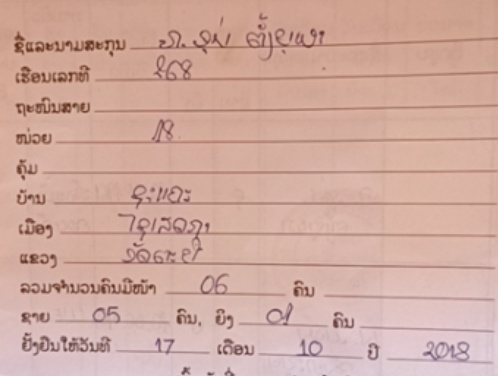 ຊື່ແລະນາມສະກຸນ ທ.
ເຮືອນເລກທີ 268
ຖະໜົນສາຍ
ໜ່ວຍ 18
ຄຸ້ມ
ບ້ານ
ເມືອງ ໄຊເສດຖາ
ແຂວງ ອັດຕະປື
ລວມຈຳນວນຄົນມີໜ້າ 06 ຄົນ
ຊາຍ 05 ຄົນ, ຍິງ 01 ຄົນ
ຢັ້ງຢືນໃຫ້ວັນທີ 17 ເດືອນ 10 ປີ 2018